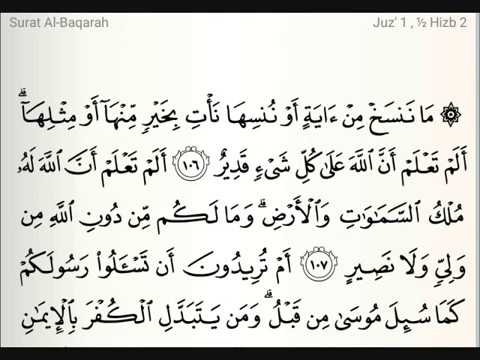 Surat Al-Baqarah Juz' 1 , ½ Hizb 2
۞ مَا نَنسَخْ مِنْ ءَايَةٍ أَوْ نُنسِهَا نَأْتِ بِخَيْرٍۢ مِّنْهَآ أَوْ مِثْلِهَآ ۗ
أَلَمْ تَعْلَمْ أَنَّ ٱللَّهَ عَلَىٰ كُلِّ شَىْءٍۢ قَدِيرٌ ١٠٦ أَلَمْ تَعْلَمْ أَنَّ ٱللَّهَ لَهُۥ
مُلْكُ ٱلسَّمَٰوَٰتِ وَٱلْأَرْضِ ۗ وَمَا لَكُم مِّن دُونِ ٱللَّهِ مِن
وَلِىٍّۢ وَلَا نَصِيرٍ ١٠٧ أَمْ تُرِيدُونَ أَن تَسْـَٔلُوا۟ رَسُولَكُمْ
كَمَا سُئِلَ مُوسَىٰ مِن قَبْلُ ۗ وَمَن يَتَبَدَّلِ ٱلْكُفْرَ بِٱلْإِيمَٰنِ